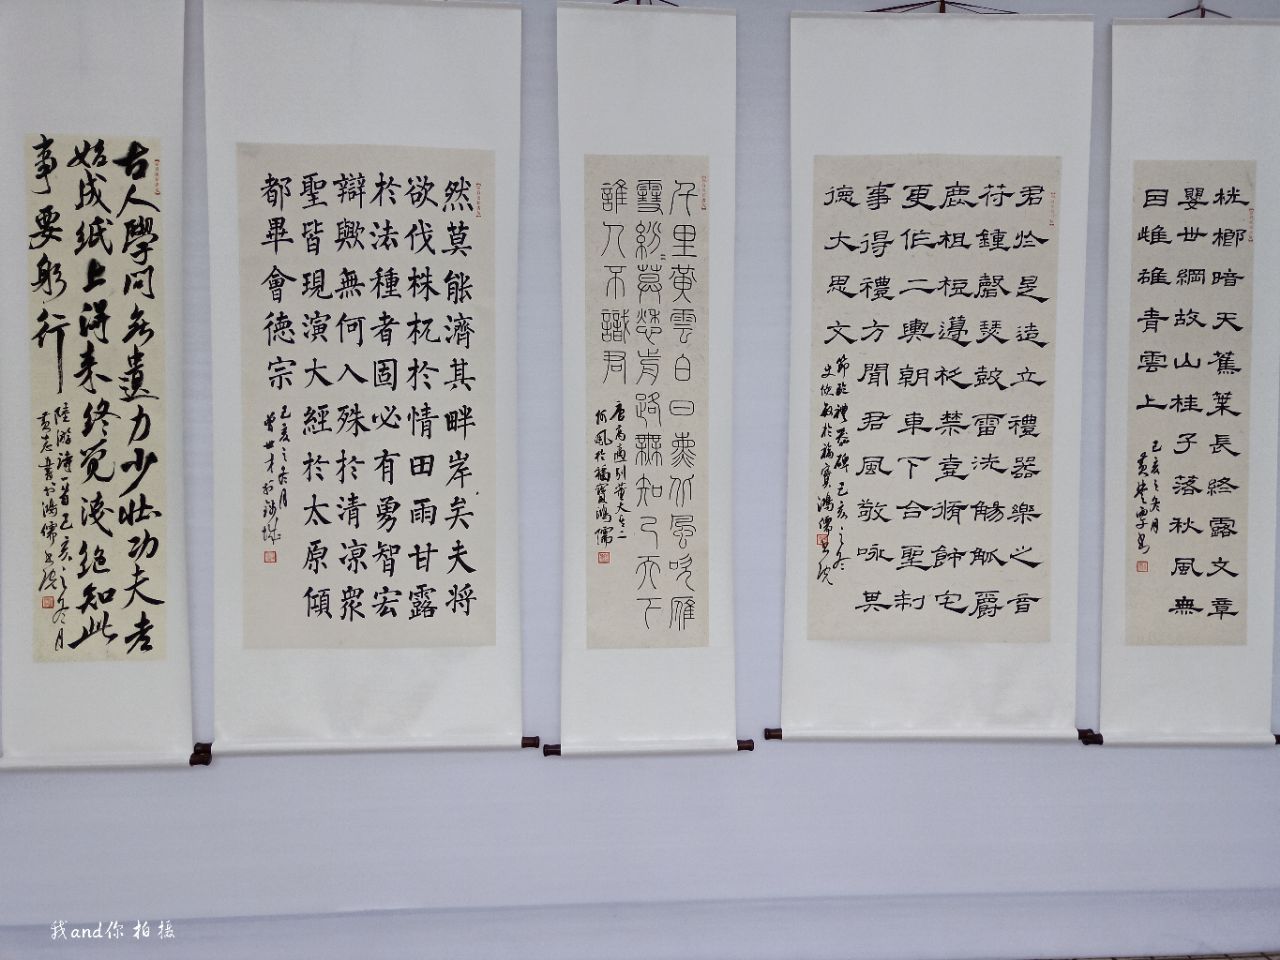 古人學问无遺力少壮功夫老
始成紙上得来终觉浅绝知此
事要躬行
陸游诗一首己亥之冬月
黄志書於鴻儒書院
然莫能濟其畔岸矣夫将
欲伐株杌於情田雨甘露
於法種者固必有勇智宏
辯歟無何入殊於清凉衆
聖皆現演大經於太原傾
都畢會德宗
己亥之冬月
千里黄雲白日曛北風吹雁
雪紛=莫愁前路無知己天下
誰人不識君
唐高適别董大其二
於福寶鴻儒
君於是造立禮器樂之音
符鍾磬瑟鼓雷洗觴觚爵
鹿柤梪籩柉禁壺脩飾宅
更作二輿朝車下合聖制
事得禮方聞君風敬咏其
德大思文
節臨禮器碑己亥之冬
於福寶鴻儒書院
桄榔暗天蕉葉長終露文章
嬰世綱故山桂子落秋風無
因雌雄青雲上
己亥之冬月
我and你 拍摄